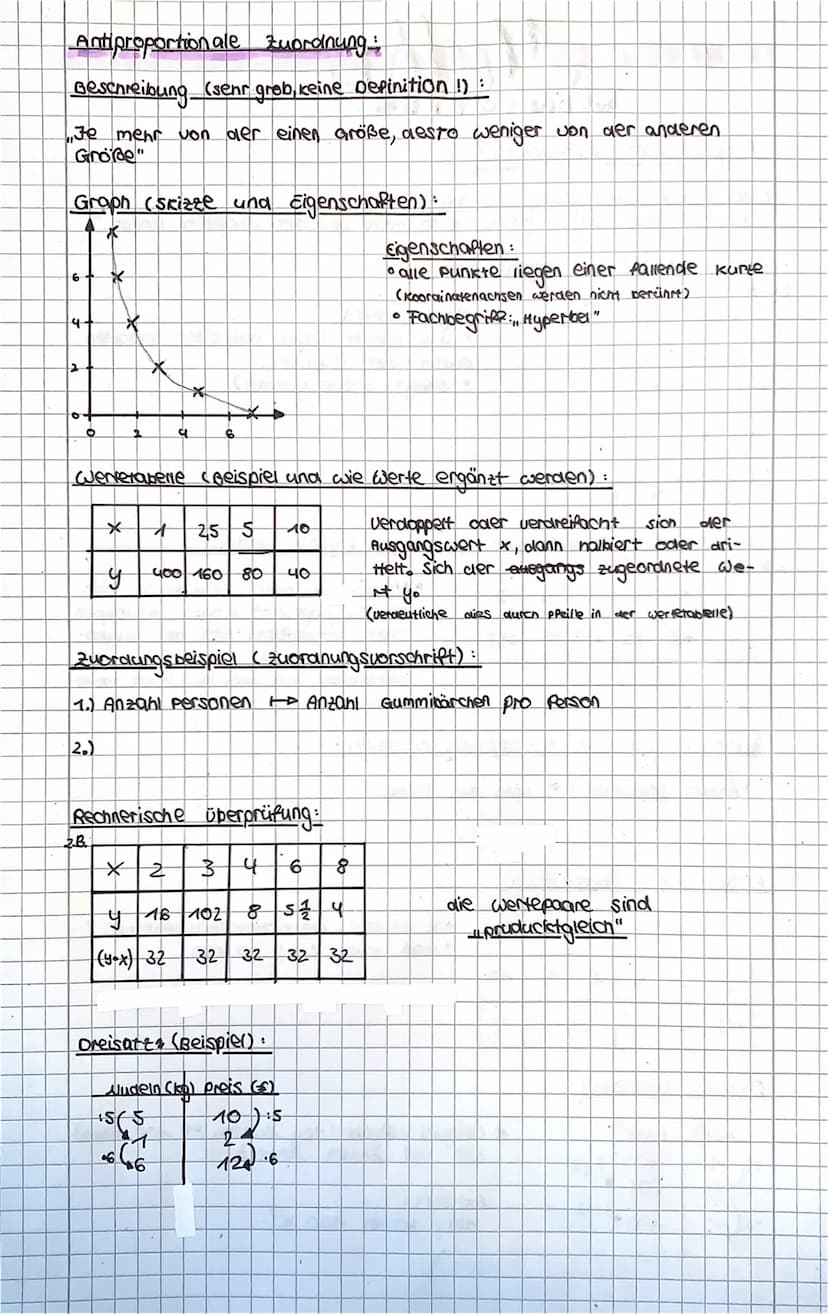 Antiproportionale Zuordnung:
Beschreibung (sehr grob, keine Definition!):
„Je mehr von der einen Größe, desto weniger von der anderen
Größe"
Graph (Skizze und Eigenschaften):
Eigenschaften:
° alle Punkte liegen einer fallende Kurve
(Koordinatenachsen werden nicht berührt)
° Fachbegriff: „Hyperbel"
6
4
2
0
0 2 4 6
Wertetabelle (Beispiel und wie Werte ergänzt werden):
x 1 2,5 5 10
y 400 160 80 40
Verdoppelt oder verdreifacht sich der
Ausgangswert x, dann halbiert oder dri-
ttelt sich der ausgangs zugeordnete We-
rt y.
(verdeutliche dies durch Pfeile in der Wertetabelle)
Zuordungsbeispiel (Zuordnungsvorschrift):
1.) Anzahl Personen ↦ Anzahl Gummibärchen pro Person
2.)
Rechnerische Überprüfung:
z.B.
x 2 3 4 6 8
y 16 102 8 5 1/2 4
(y•x) 32 32 32 32 32
die Wertepaare sind
„producktgleich"
Dreisatz (Beispiel):
Nudeln (kg) Preis (€)
:5 5 10 :5
1 2
•6 6 12 •6